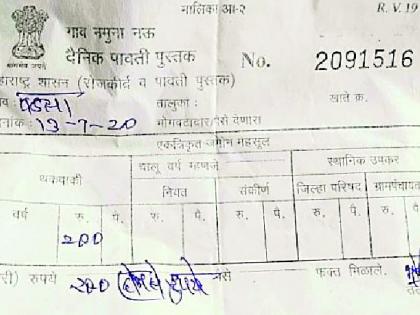 मालिका आ-२ R. V. 19
गाव नमुना नऊ
दैनिक पावती पुस्तक No. 2091516
हाराष्ट्र शासन (राजकीर्द व पावती पुस्तक)
ाव : तालुका : खाते क्र.
नांक : 13-7-20 भोगवटादार/पैसे देणारा
एकत्रिकृत जमीन महसूल
थकबाकी चालू वर्ष म्हणजे स्थानिक उपकर
नियत संकीर्ण जिल्हा परिषद ग्रामपंचाय
वर्ष रु. पै. रु. पै. रु. पै. रु. पै. रु. पै.
200
री) रुपये 200 (दोनशे रुपये पैसे फक्त मिळाले.